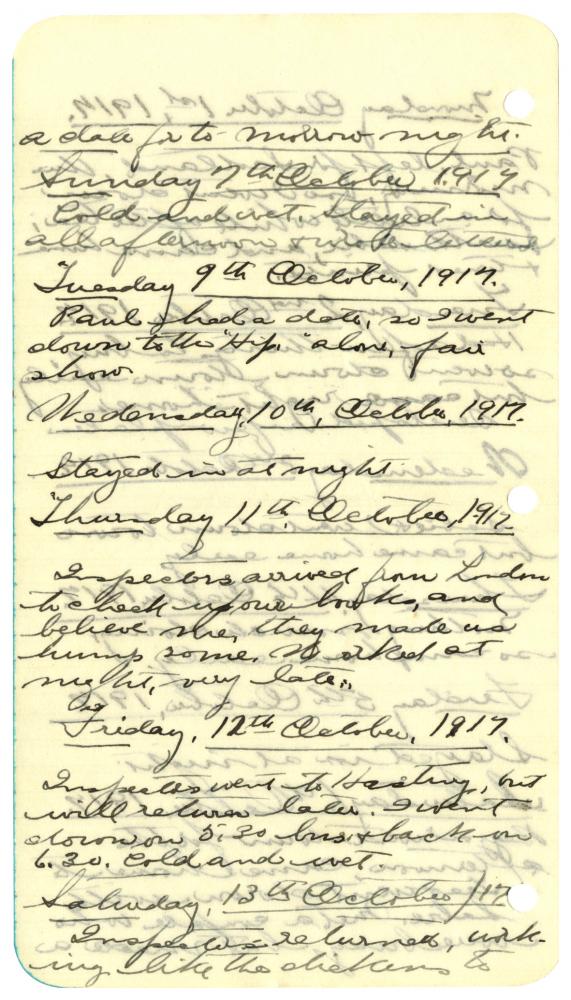 a date for to morrow night.
Sunday 7th October 1917
Cold and wet. Stayed in
all afternoon & wrote letters
Tuesday 9th October, 1917.
Paul had a date, so I went
down to the "Hip," alone, fair
show
Wedensday, 10th, October, 1917.
Stayed in at night
Thursday 11th October, 1917
Inspectors arrived from London
to check up our books, and
believe me, they made us
hump some. Worked at
night, very late.
Friday, 12th October, 1917.
Inspectors went to Hastings, but
will return later. I went
down on 5.30 bus & back on
6.30. Cold and wet.
Saturday, 13th October/17
Inspectors returned, work-
ing like the dickens to